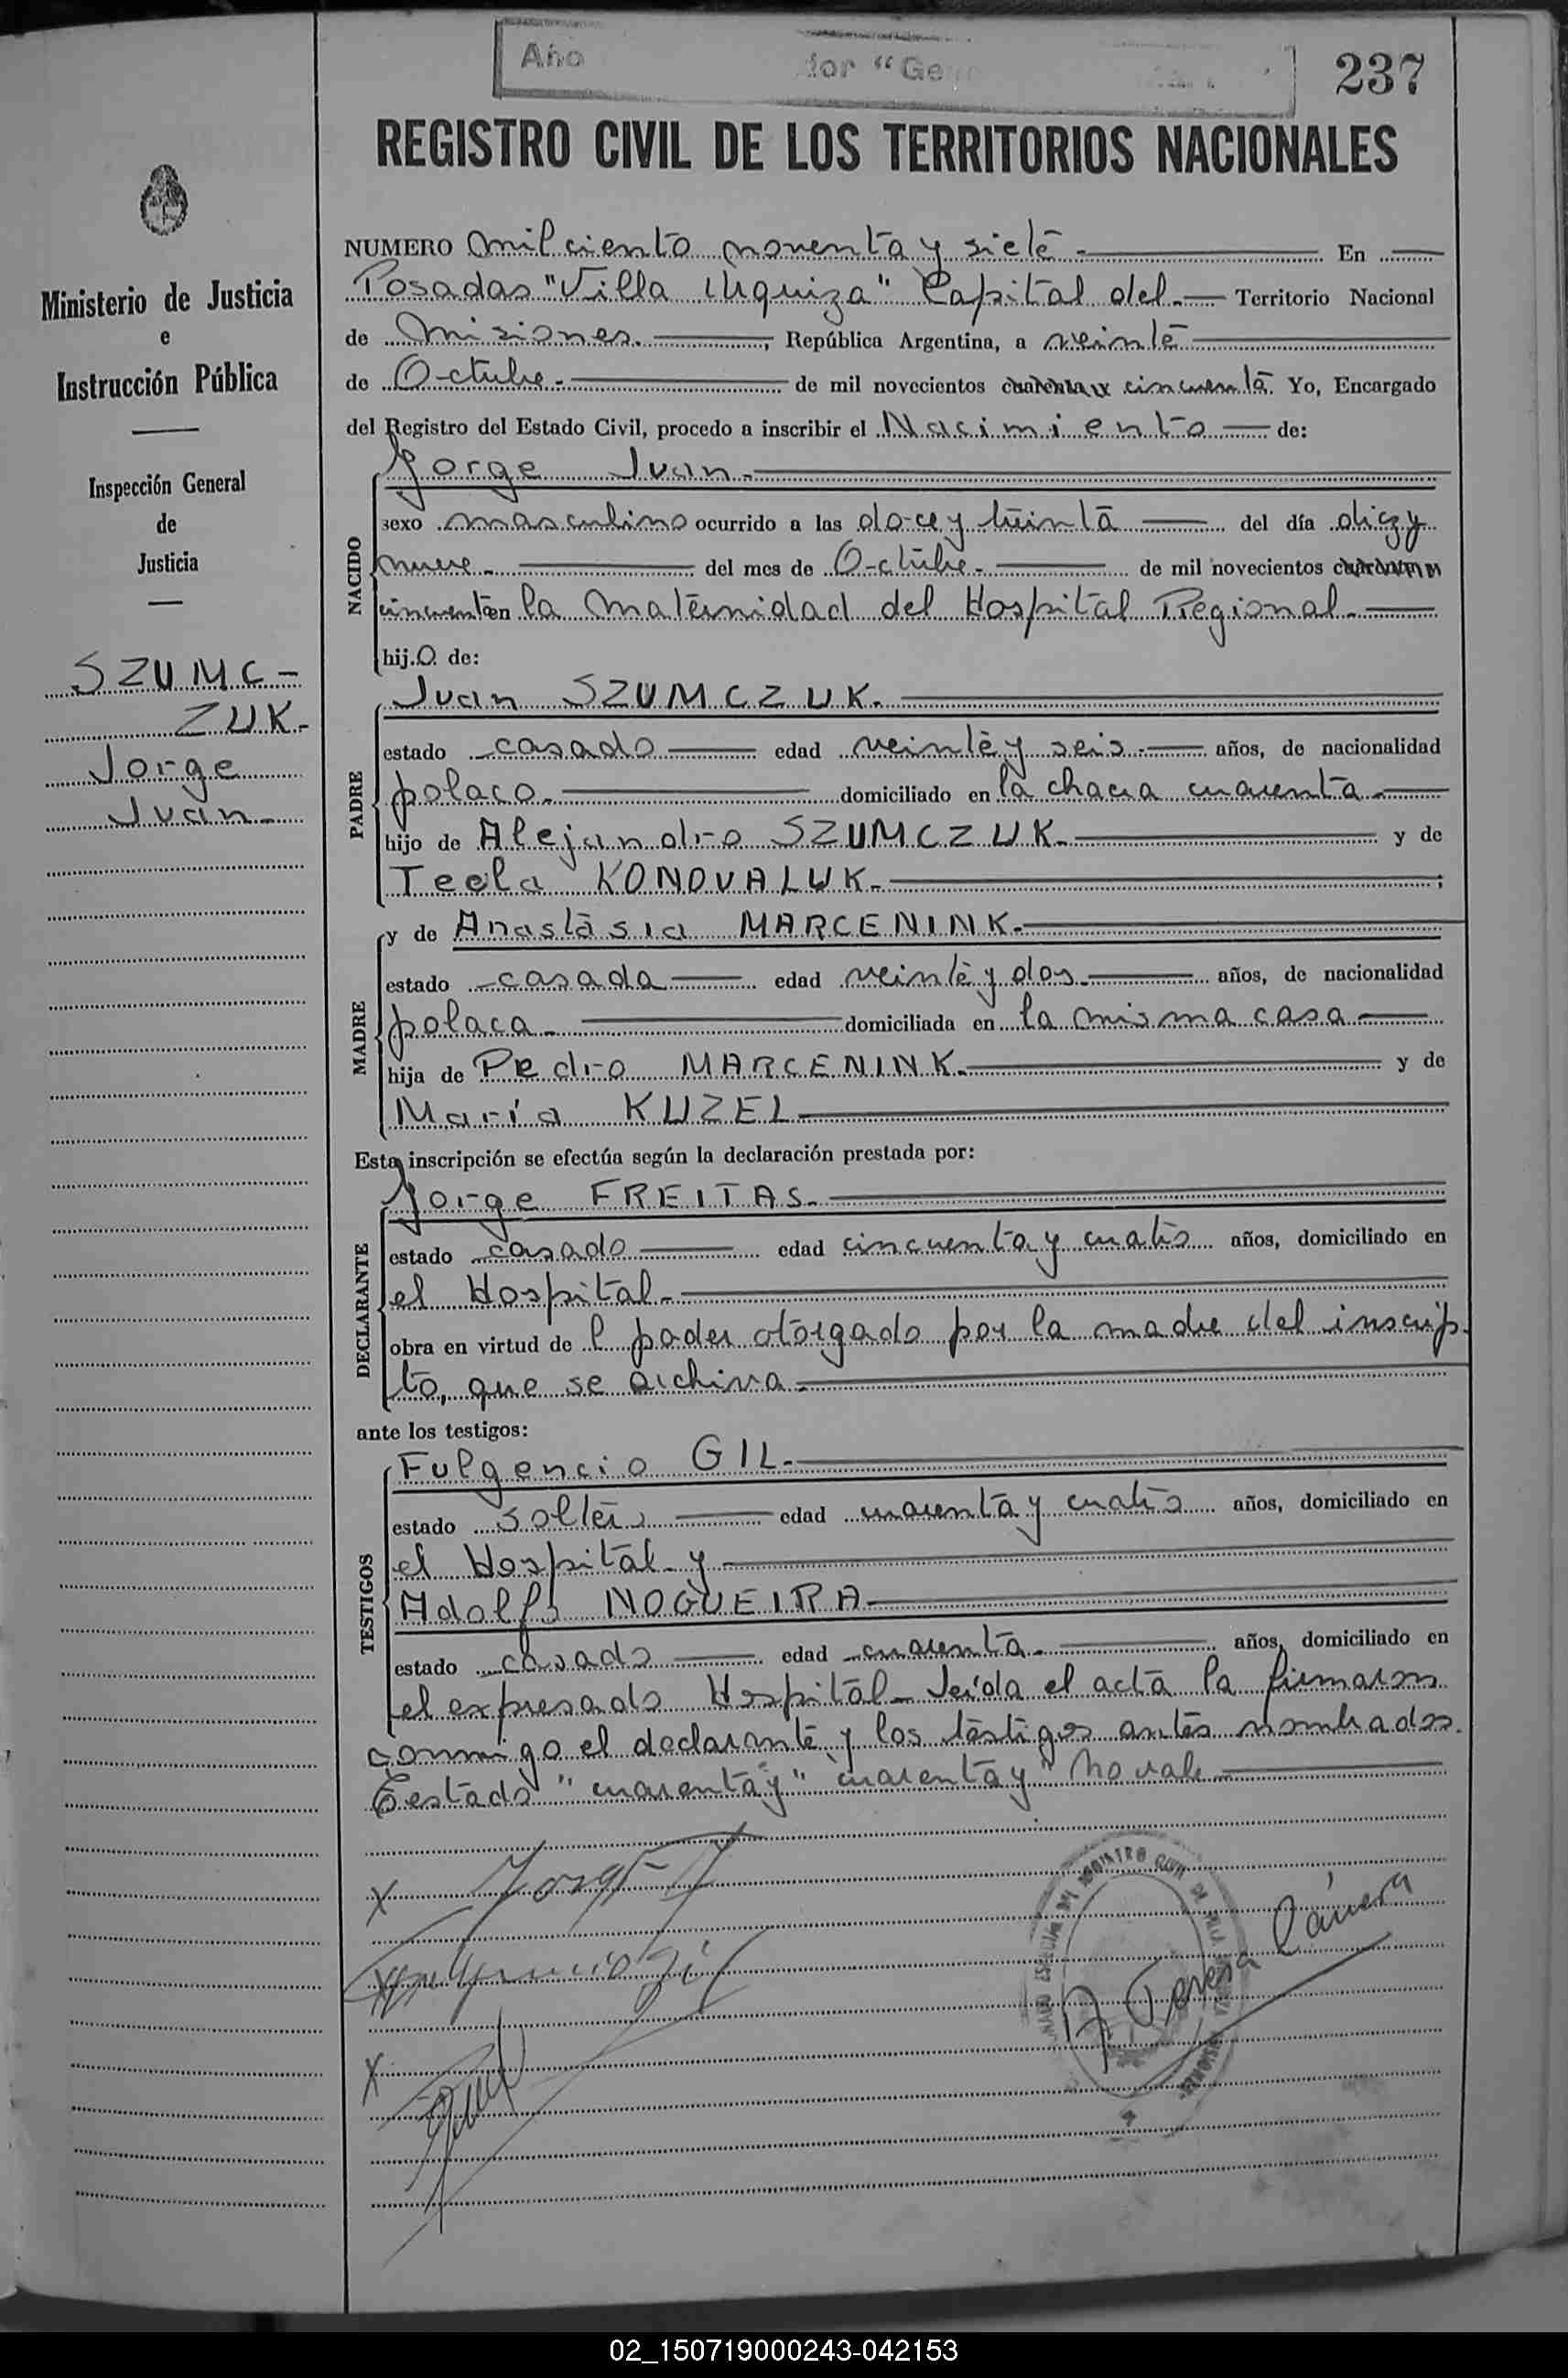 Año dor “Ge
237
REGISTRO CIVIL DE LOS TERRITORIOS NACIONALES
Ministerio de Justicia
e
Instrucción Pública
Inspección General
de
Justicia
SZUMC-
ZUK-
Jorge
Juan-
NUMERO Mil ciento noventa y siete - En
Posadas "Villa Urquiza" Capital del - Territorio Nacional
de Misiones. , República Argentina, a veinte
de Octubre - de mil novecientos cuarenta y cincuenta. Yo, Encargado
del Registro del Estado Civil, procedo a inscribir el Nacimiento de:
NACIDO
Jorge Juan-
sexo masculino ocurrido a las doce y treinta del día diez y
nueve - del mes de Octubre - de mil novecientos cuarenta y
cincuenta en la Maternidad del Hospital Regional.
hijo de:
PADRE
Juan SZUMCZUK.
estado casado edad veinte y seis - años, de nacionalidad
polaco. domiciliado en la chacra cuarenta
hijo de Alejandro SZUMCZUK. y de
Tecla KONOVALUK. ;
MADRE
y de Anastasia MARCENINK.
estado casada edad veinte y dos. años, de nacionalidad
polaca - domiciliada en la misma casa
hija de Pedro MARCENINK. y de
María KUZEL
Esta inscripción se efectúa según la declaración prestada por:
DECLARANTE
Jorge FREITAS.
estado casado edad cincuenta y cuatro años, domiciliado en
el Hospital.
obra en virtud de l poder otorgado por la madre del inscrip-
to, que se archiva.
ante los testigos:
TESTIGOS
Fulgencio GIL.
estado soltero edad cuarenta y cuatro años, domiciliado en
el Hospital y
Adolfo NOGUEIRA
estado casado edad cuarenta. años, domiciliado en
el expresado Hospital - Leída el acta la firmaron
conmigo el declarante y los testigos antes nombrados.
Testado "cuarenta y" "cuarenta y" No vale
x Jorge
x Fulgencio Gil
x
REGISTRO CIVIL DE VILLA
MISIONES
Teresa
02_150719000243-042153